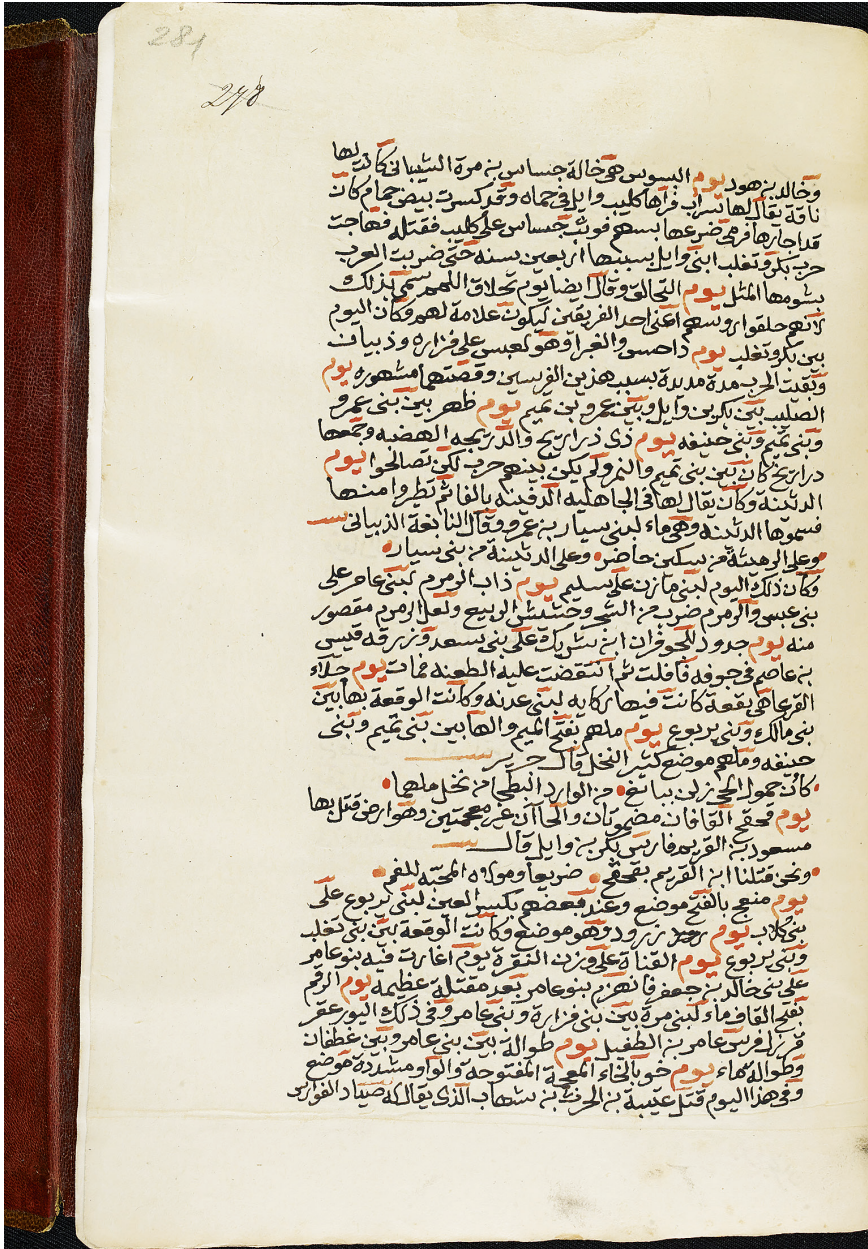 281
278
وخالد بن هود يوم البسوس هي خالة جساس بن مرة الشيبانى كانت لها
ناقة يقال لها سراب فرآها كليب وايل فى حماه وقد كسرت بيض حمام كان
قد اجارها فرمى ضرعها بسهم فوثب جساس على كليب فقتله فهاجت
حرب بكر وتغلب ابنى وايل بسببها اربعين سنه حتى ضربت العرب
بشومها المثل يوم التحالق وقال ايضا يوم تحلاق اللمم سمى بذلك
لانهم حلقوا روسهم اعنى احد الفريقين ليكون علامة لهم وكان اليوم
بين بكر وتغلب يوم داحس والغبرا وهو لعبس على فزاره وذبيان
وبقيت الحرب مدة مديدة بسبب هذين الفرسين وقصتهما مشهوره يوم
الصليب بين بكر بن وايل وبين عمرو بن تميم يوم ظهر بين بنى عمرو
وبنى تميم وبنى حنيفه يوم ذى ذراريح والذريحه الهضبه وجمعها
ذراريح كان بين بنى تميم والنمر ولم يكن بينهم حرب لكن تصالحوا يوم
الدثينة وكان يقال لها فى الجاهليه الدفينه بالفا ثم تطيروا منها
فسموها الدثينه وهى ماء لبنى سيار بن عمرو وقال النابغة الذبيانى
وعلى الرميثة من سكين حاضر وعلى الدثينة من بنى سيار
وكان ذلك اليوم لبنى مازن على سليم يوم ذاب الرمرم لبنى عامر على
بنى عبس والرمرم ضرب من الشجر وحشيش الربيع ولعل الرمرم مقصور
منه يوم جدود للحوفزان ابن شريك على بنى سعد وزرقه قيس
بن عاصم فى جوفه فافلت ثم انتقضت عليه الطعنه فمات يوم جلاء
القرعا هى بقعة كانت فيها ركايه لبنى عدنه وكانت الوقعة بها بين
بنى مالك وبنى يربوع يوم ملهم بفتح الميم والها بين بنى تميم وبنى
حنيفه وملهم موضع كثير النخل قال جرير
كان حمول الحى زلن بيانع من الوارد البطحا من نخل ملهما
يوم قحقح القافان مضمومتان والحاآن غير معجمتين وهو ارض قتل بها
مسعود بن القريم فارس بكر بن وايل قال
ونحن قتلنا ابن القريم بقحقح ضريعا ومولاه المجبه للفم
يوم منعج بالفتح موضع وعند بعضهم بكسر العين لبنى يربوع على
بنى كلاب يوم زرود وهو موضع وكانت الوقعة بين بنى تغلب
وبنى يربوع يوم القناة على وزن النقرة يوم اغارت فيه بنو عامر
على بنى خالد بن جعفر فانهزم بنو عامر بعد مقتلة عظيمه يوم الرقم
بفتح القاف ماء لبنى مرة بين بنى فزارة وبنى عامر وفى ذلك اليوم عقر
قرزل فرس عامر بن الطفيل يوم طوالة بين بنى عامر وبين غطفان
وطواله ماء يوم خو بالخاء المعجمة المفتوحة والواو مشددة موضع
وفى هذا اليوم قتل عتيبة بن الحرث بن شهاب الذى يقال له صياد الفوارس